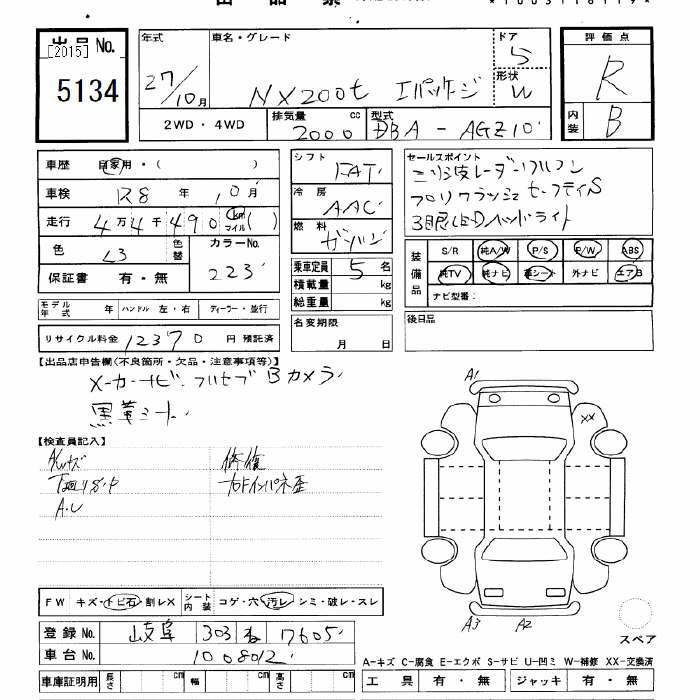 [2015]
出品 No.
5134
年式
27/10月
車名・グレード
NX200t Iパッケージ
ドア
5
形状
W
評価点
R
内装
B
2WD・4WD
排気量
2000 cc
型式
DBA-AGZ10
車歴 自家用・( )
車検 R8 年 10月
走行 4万4千490 km マイル ( )
色
色替
カラーNo.
223
保証書 有・無
モデル年式 年 ハンドル 左・右 ディーラー・並行
リサイクル料金 12370 円 預託済
シフト
FAT
冷房
AAC
燃料
ガソリン
乗車定員 5 名
積載量 kg
総重量 kg
名変期限
月 日
セールスポイント
プリクラッシュセーフティS
3眼LEDヘッドライト
装備品
S/R 純A/W P/S P/W ABS
純TV 純ナビ 革シート 外ナビ エアB
ナビ型番:
後日品
【出品店申告欄(不良箇所・欠品・注意事項等)】
メーカーナビ フルセグ Bカメラ
黒革シート
【検査員記入】
修復
A1
XX
A3
A2
スペア
FW キズ・トビ石・割レX シート内装 コゲ・穴・汚レ・シミ・破レ・スレ
登録No. 岐阜 303 7605
車台No. 1008012
車庫証明用 長さ cm 幅 cm 高さ cm
A-キズ C-腐食 E-エクボ S-サビ U-凹ミ W-補修 XX-交換済
工具 有・無 ジャッキ 有・無